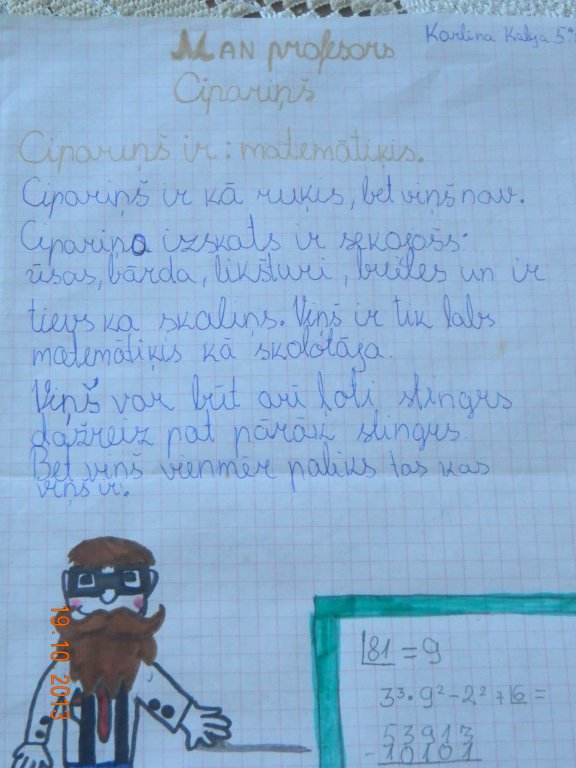 MAN profesors
Karlīna Katja 5
Cipariņš
Cipariņš ir: matemātiķis.
Cipariņš ir kā rūķis, bet viņš nav.
Cipariņa izskats ir sekojošs-
ūsas, bārda, likšturi, brilles un ir
tievs ka skaliņs. Viņš ir tik labs
matemātiķis kā skolotāja.
Viņš var būt arī ļoti stingrs
dažreiz pat pārāk stingrs.
Bet viņš vienmēr paliks tas kas
viņš ir.
81 = 9
3³·9²-2²+6=
53913
-10101
19.10.2013